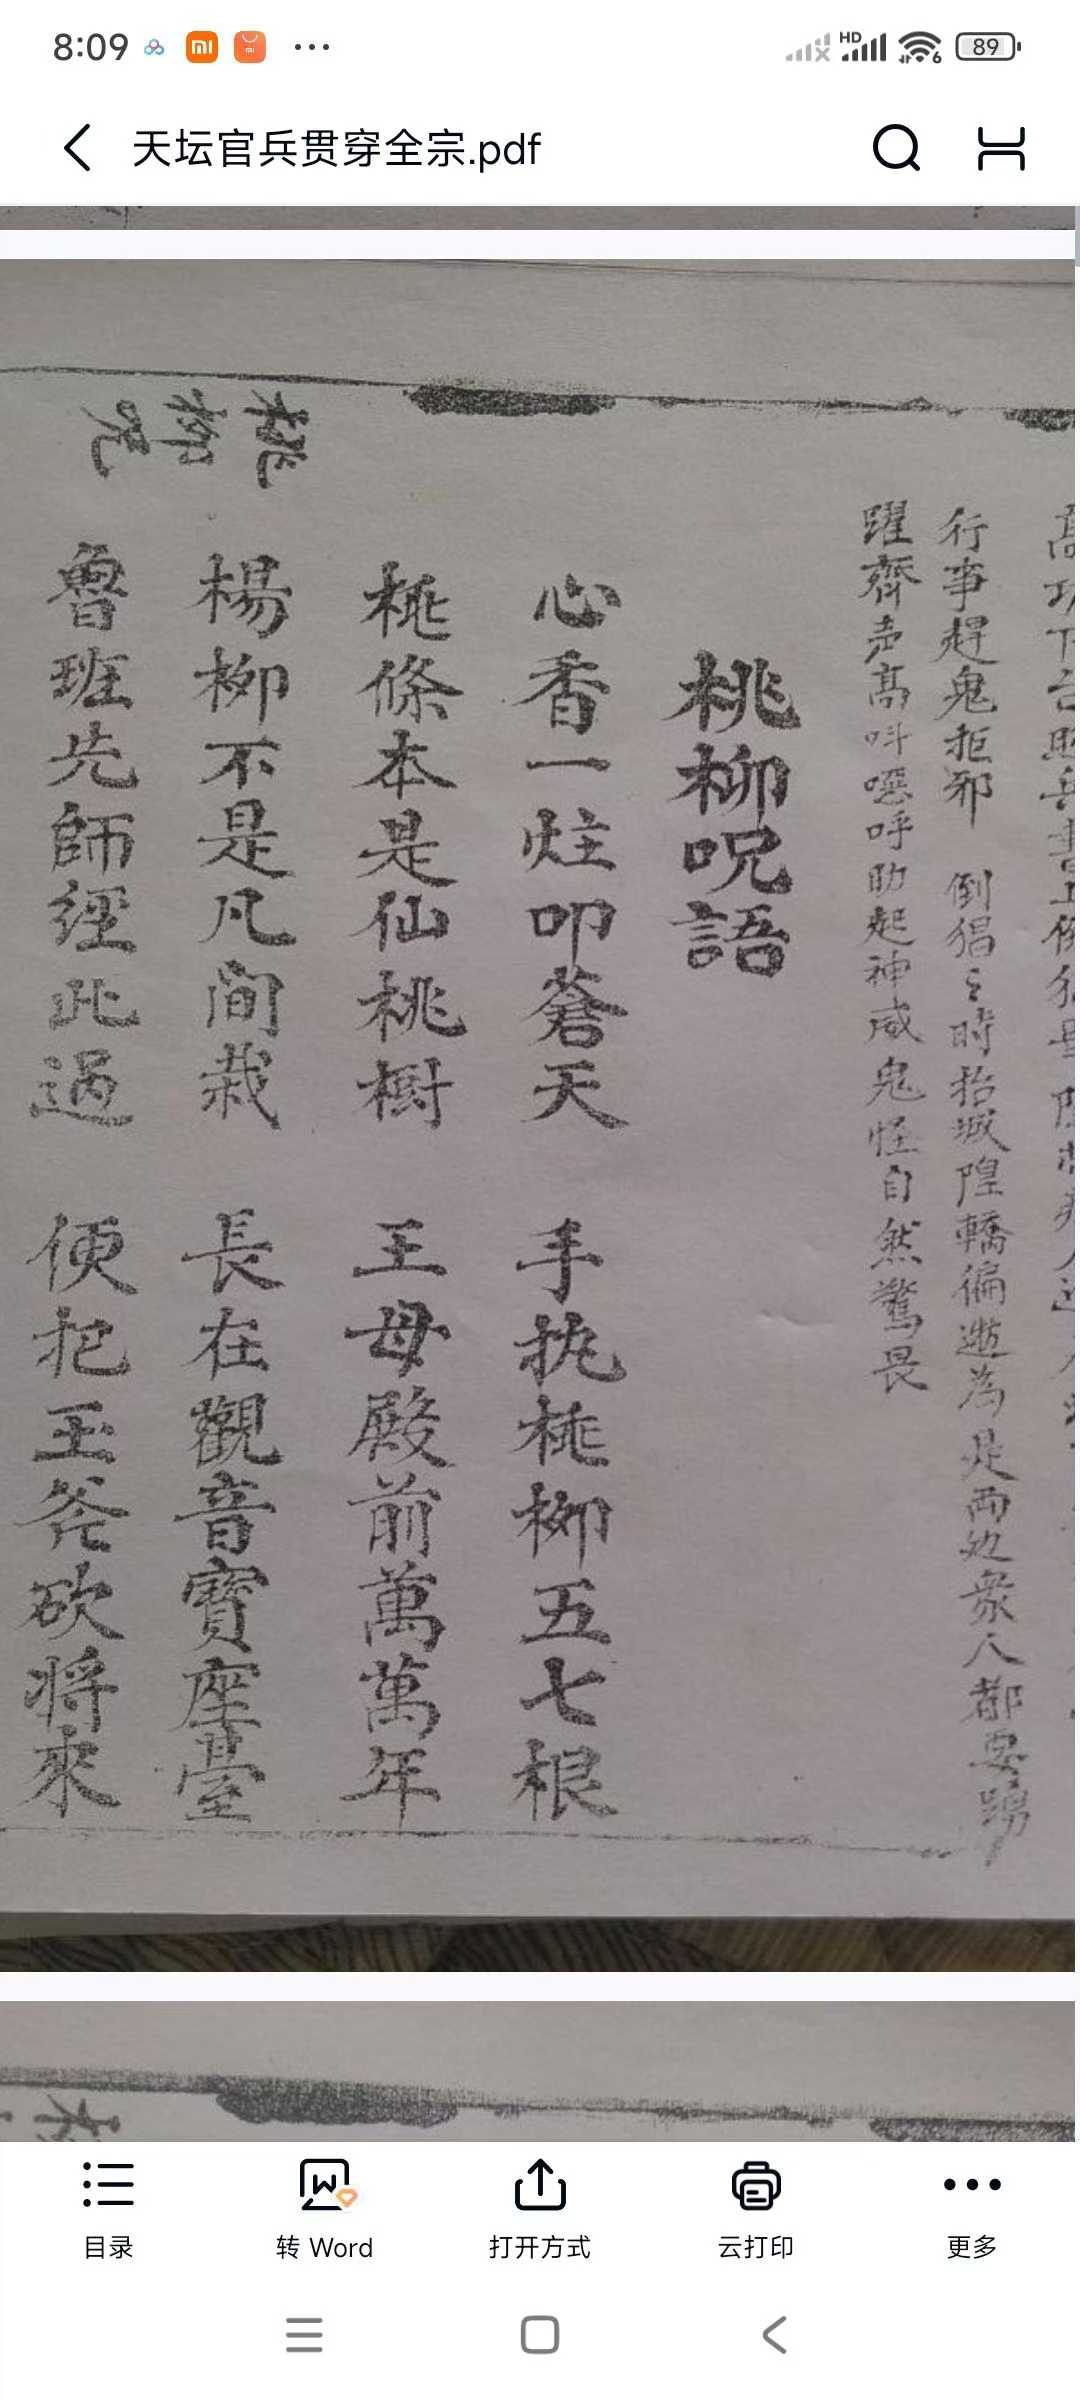 8:09
HD
6
89
天坛官兵贯穿全宗.pdf
行事趕鬼拒邪 倒猖之時抬城隍轎偏遊為是两边衆人都要踴
躍齊声高呌噁呼助起神威鬼怪自然驚畏
桃柳呪語
心香一炷叩蒼天 手执桃柳五七根
桃條本是仙桃樹 王母殿前萬萬年
楊柳不是凡間栽 長在觀音寶座臺
魯班先師經此過 便把玉斧砍將來
桃柳咒
目录
转 Word
打开方式
云打印
更多